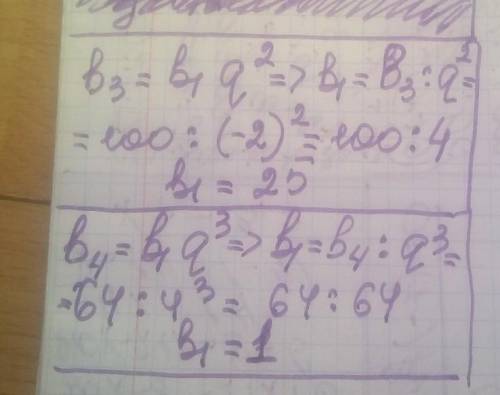 b₃ = b₁ q² => b₁ = b₃ : q² =
= 100 : (-2)² = 100 : 4
b₁ = 25
b₄ = b₁ q³ => b₁ = b₄ : q³ =
= 64 : 4³ = 64 : 64
b₁ = 1